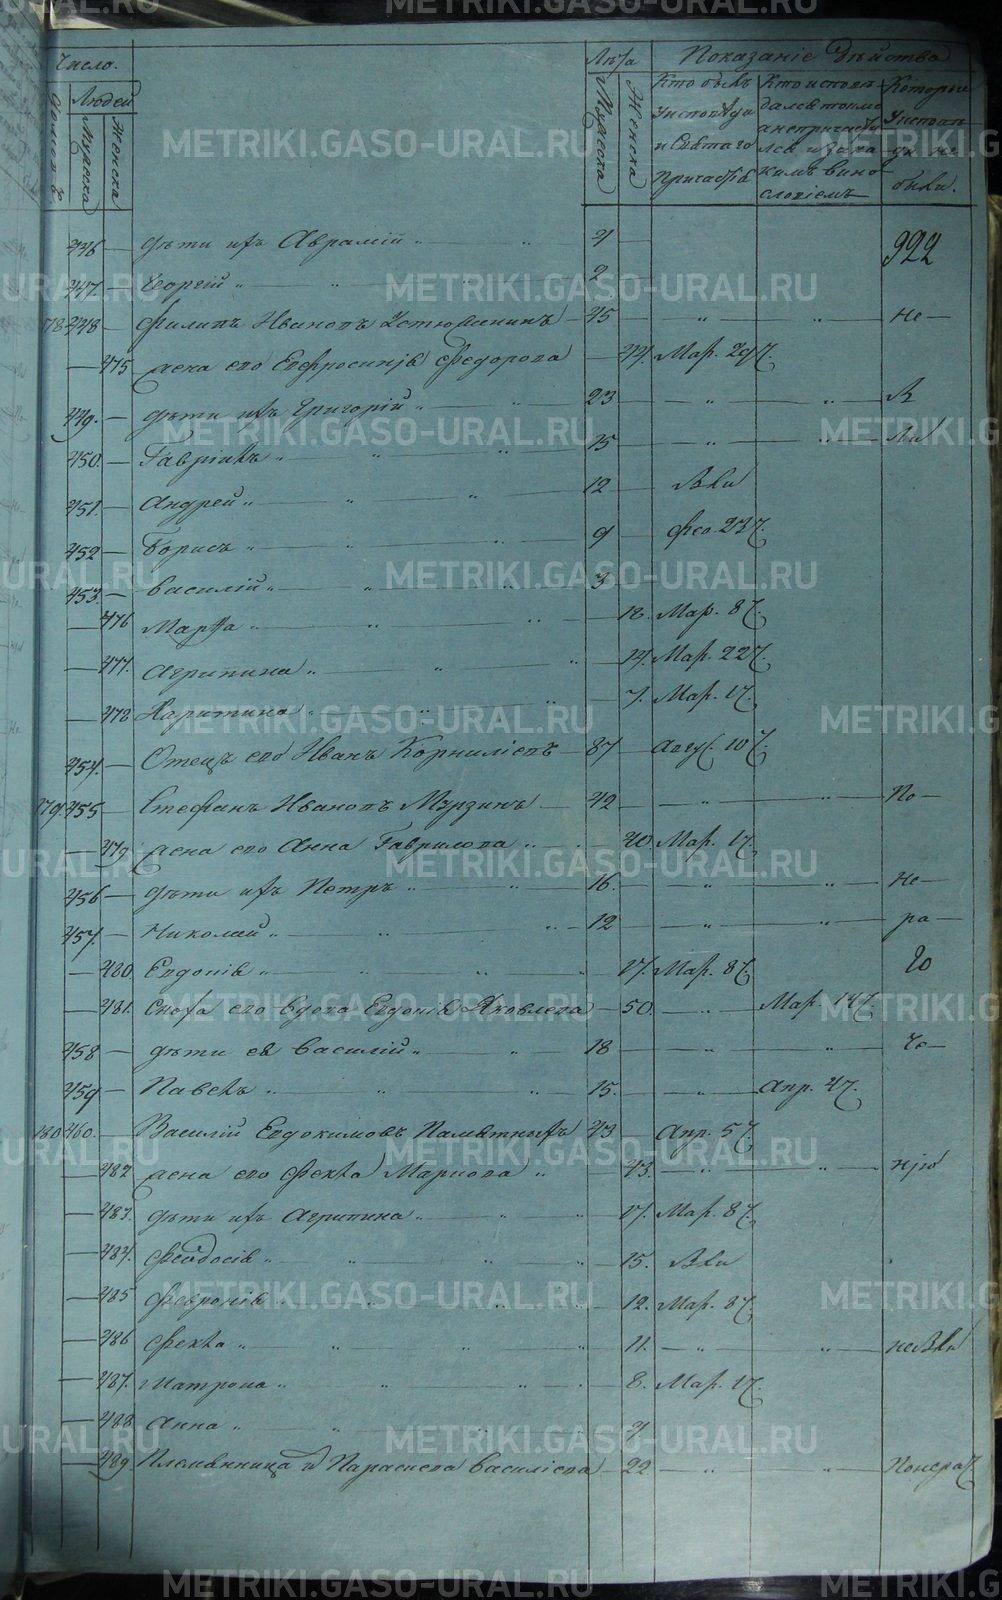 Число.
Домовъ
Людей
Мужска
Женска
Лѣта
Мужска
Женска
Показаніе дѣйства
Кто былъ у исповѣди и Святаго Причастія
Кто исповѣдался токмо а не причастился и за какимъ винословіемъ
Которые у исповѣди не были.
922
446 дѣти ихъ Аврамій 4
447 Георгій 2
178 448 Филипъ Ивановъ Устюженинъ 45 Не
475 жена его Евфросинія Федорова 44. Мар. 29
449. дѣти ихъ Григорій 23
450. Гавріилъ 15
451. Андрей 12
452 Борисъ 9 Фев 23
453. Василій 3
476 Марѳа 18. Мар. 8
477. Агрипина 14. Мар. 22
478 Харитина 7. Мар. 1
454. Отецъ его Иванъ Корниліевъ 87 Авгус. 10
179. 455 Стефанъ Ивановъ Мурзинъ 42 По
479 жена его Анна Гаврилова 40 Мар. 1
456 дѣти ихъ Петръ 16. Не
457. Николай 12 ра
480 Евдокія 17. Мар. 8
481. Сноха его вдова Евдокія Яковлева 50. Мар. 14
458 дѣти ея Василій 18
459 Павелъ 15. Апр. 4
180 460. Василій Евдокимовъ Памятныхъ 43 Апр. 5
482 жена его Фекла Маркова 43.
483. дѣти ихъ Агрипина 17. Мар. 8
484. Феодосія 15.
485 Февронія 12. Мар. 8
486 Фекла 11.
487. Матрона 8. Мар. 1
488 Анна 4
489. Племянница и Параскева Василіева 22
METRIKI.GASO-URAL.RU